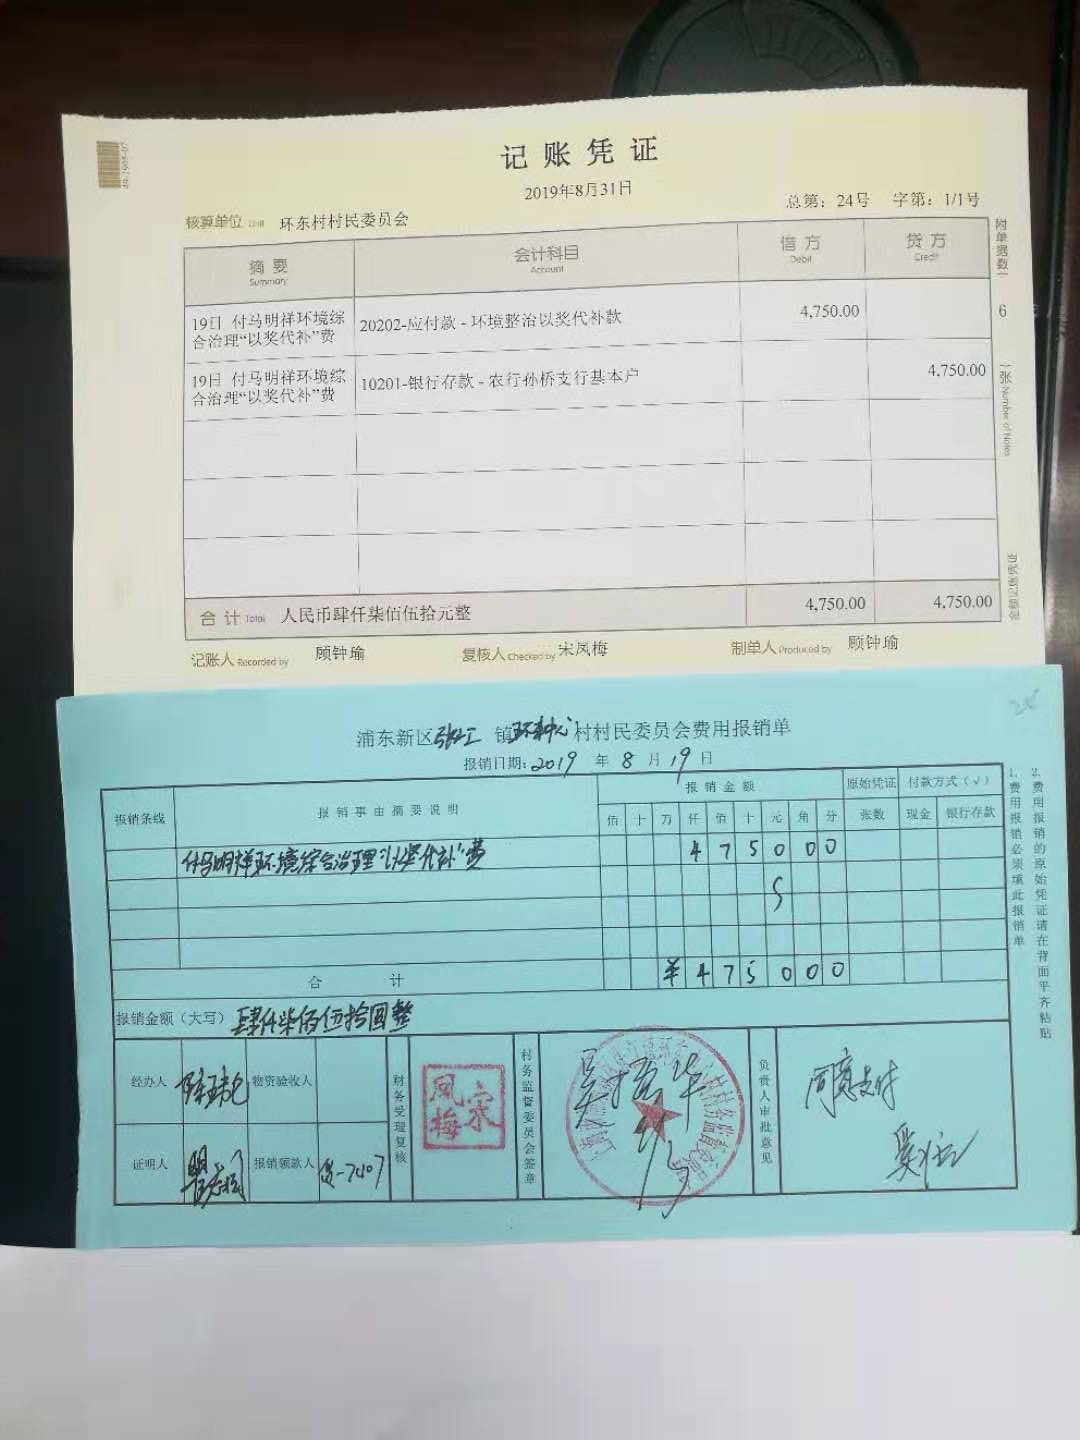 记账凭证
2019年8月31日
总第：24号 字第：1/1号
核算单位 环东村村民委员会
摘要 会计科目 借方 贷方
Summary Account Debit Credit
附单据数 6 张 Number of Notes
19日 付马明祥环境综合治理“以奖代补”费 20202-应付款 - 环境整治以奖代补款 4,750.00
19日 付马明祥环境综合治理“以奖代补”费 10201-银行存款 - 农行孙桥支行基本户 4,750.00
合计 Total 人民币肆仟柒佰伍拾元整 4,750.00 4,750.00
记账人 Recorded by 顾钟瑜 复核人 Checked by 宋凤梅 制单人 Produced by 顾钟瑜
浦东新区张江镇环东中心村村民委员会费用报销单
报销日期：2019年8月19日
报销条线 报销事由摘要说明 报销金额 原始凭证 付款方式（√）
佰 十 万 仟 佰 十 元 角 分 张数 现金 银行存款
付马明祥环境综合治理“以奖代补”费 4 7 5 0 0 0
合计 ¥ 4 7 5 0 0 0
报销金额（大写）肆仟柒佰伍拾圆整
经办人 物资验收人
证明人 报销领款人
财务受理复核
宋凤梅
村务监督委员会签章
负责人审批意见
同意支付
1.费用报销必须填此报销单
2.费用报销的原始凭证请在背面平齐粘贴